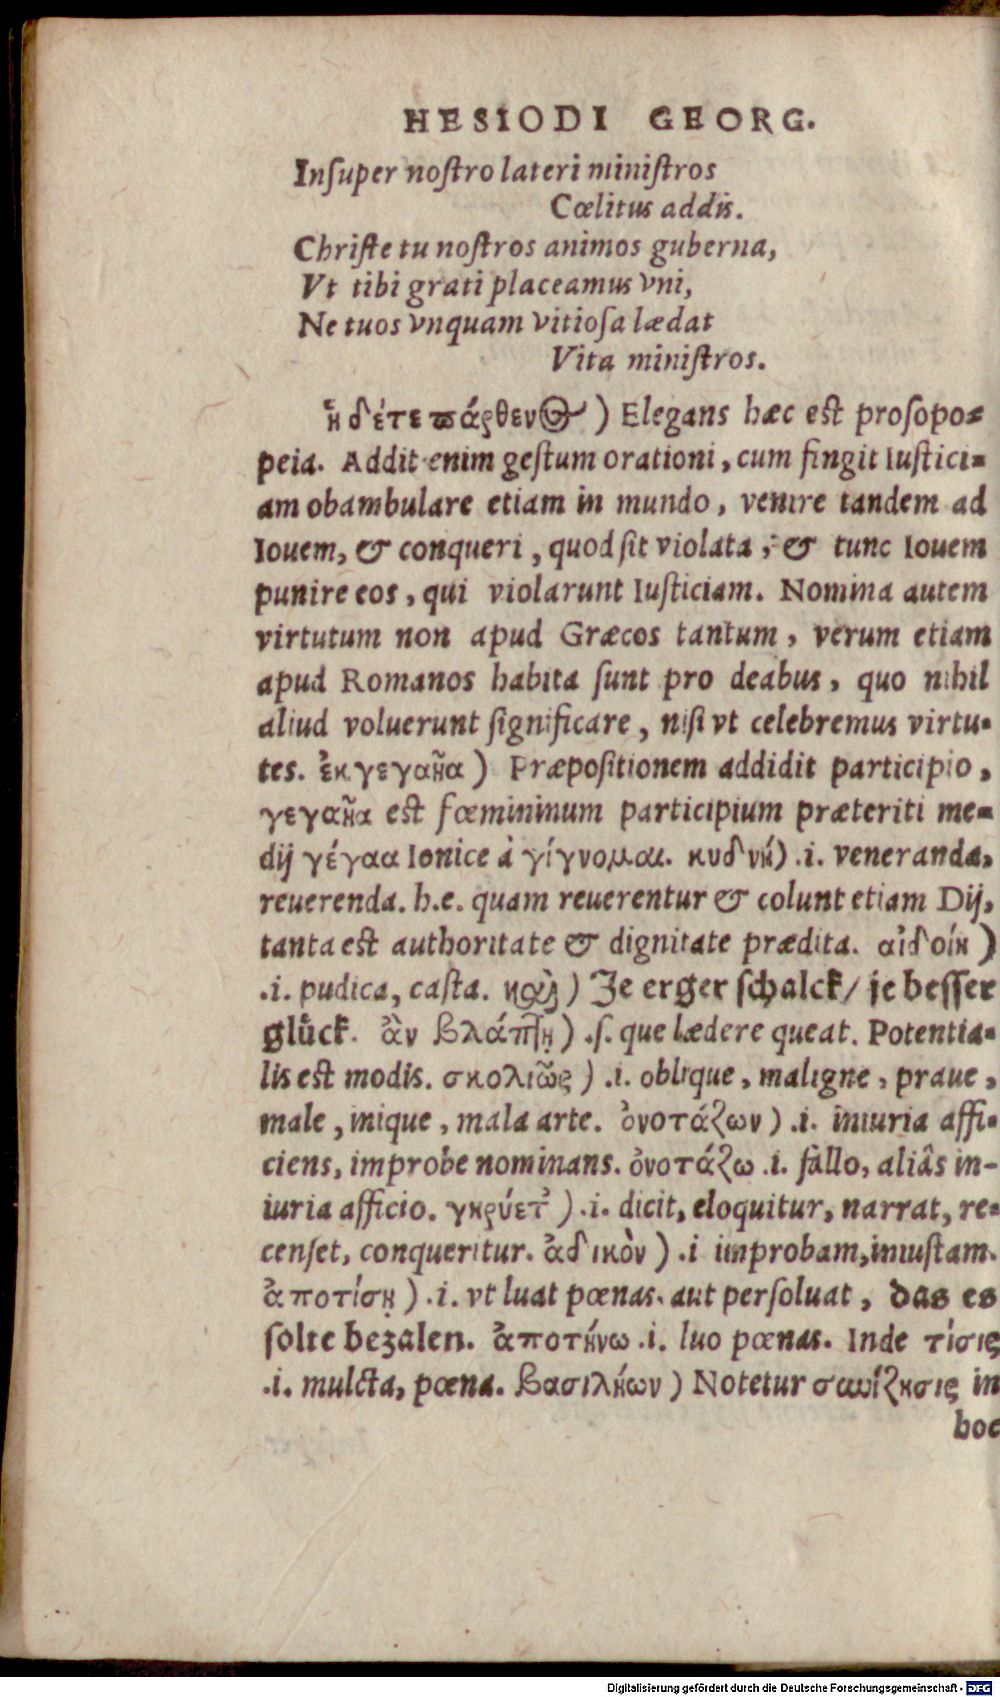 HESIODI GEORG.
Inſuper noſtro lateri miniſtros
Cœlitus addis.
Chriſte tu noſtros animos guberna,
Vt tibi grati placeamus vni,
Ne tuos vnquam vitioſa lædat
Vita miniſtros.
ἡ δέτε παρθενος) Elegans hæc est proſopo=
peia. Addit enim geſtum orationi, cum fingit Iuſtici=
am obambulare etiam in mundo, venire tandem ad
Iouem, & conqueri, quod ſit violata, & tunc Iouem
punire eos, qui violarunt Iuſticiam. Nomina autem
virtutum non apud Græcos tantum, verum etiam
apud Romanos habita ſunt pro deabus, quo nihil
aliud voluerunt ſignificare, niſi vt celebremus virtu=
tes. ἐκγεγαῆα) Præpoſitionem addidit participio,
γεγαῆα est fœmininum participium præteriti me=
dij γέγαα Ionice à γίγνομαι. κυδνή) .i. veneranda,
reuerenda. h.e. quam reuerentur & colunt etiam Dij,
tanta est authoritate & dignitate prædita. αἰδοίη)
.i. pudica, caſta. καὶ) Je erger ſchalck/ je beſſer
glück. ἂν βλάπτῃ) .ſ. que lædere queat. Potentia=
lis est modis. σκολιῶς) .i. oblique, maligne, praue,
male, inique, mala arte. ὀνοτάζων) .i. iniuria affi=
ciens, improbe nominans. ὀνοτάζω .i. fallo, aliâs in-
iuria afficio. γηρύετ᾽) .i. dicit, eloquitur, narrat, re=
cenſet, conqueritur. ἀδικὸν) .i improbam, iniuſtam.
ἀποτίσῃ) .i. vt luat pœnas. aut perſoluat, das es
ſolte bezalen. ἀποτήνω .i. luo pœnas. Inde τίσις
.i. mulcta, pœna. βασιλήων) Notetur συνίζησις in
hoc
Digitalisierung gefördert durch die Deutsche Forschungsgemeinschaft - DFG